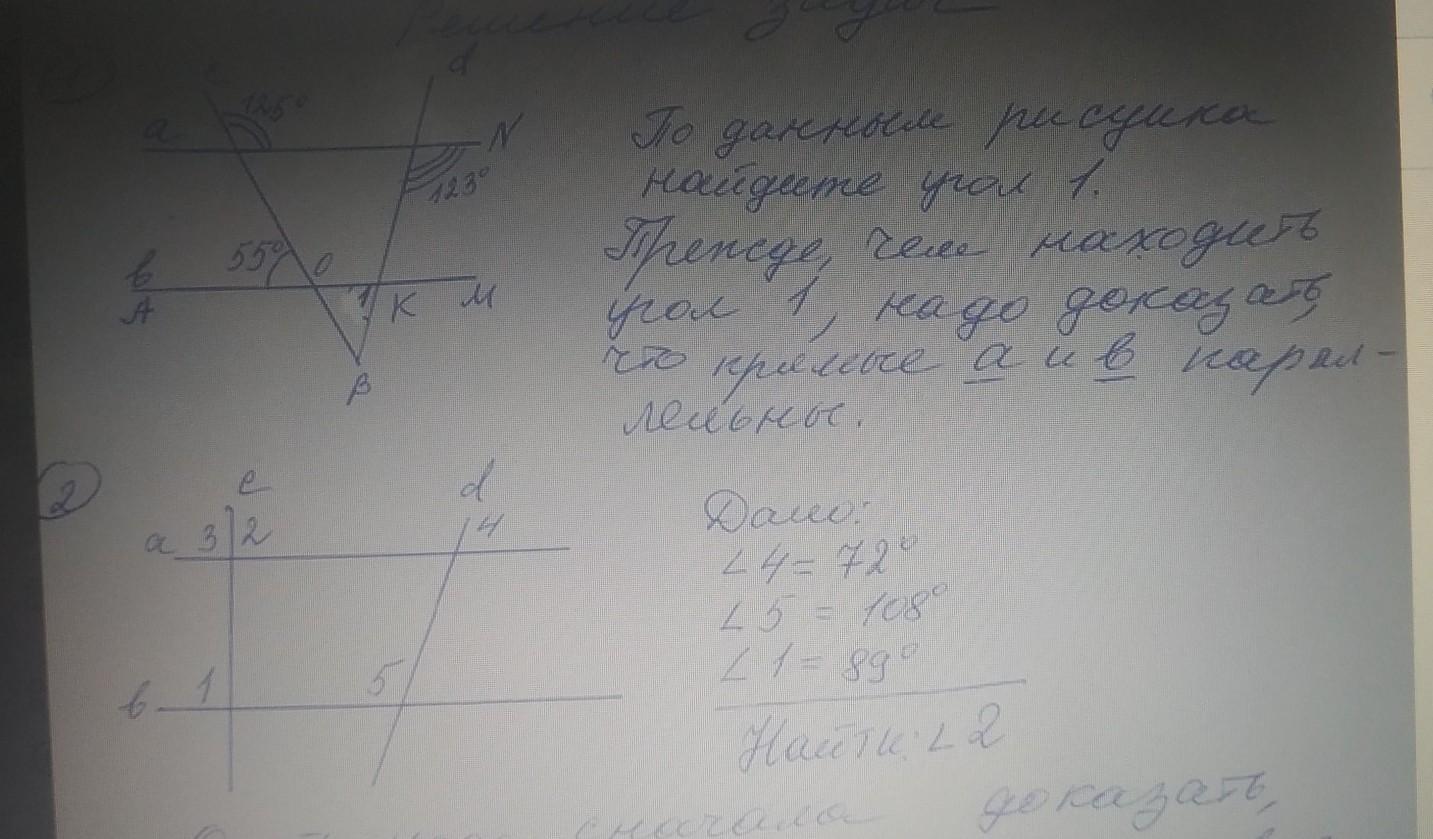 Решение задач
1
c d
125°
a N
123°
По данным рисунка
найдите угол 1.
Прежде, чем находить
угол 1, надо доказать,
что прямые а и в парал-
лельны.
55° O
в
A 1 K M
B
2
c d
a 3 2 4
1 5
в
Дано:
∠4 = 72°
∠5 = 108°
∠1 = 89°
Найти: ∠2
сначала доказать,